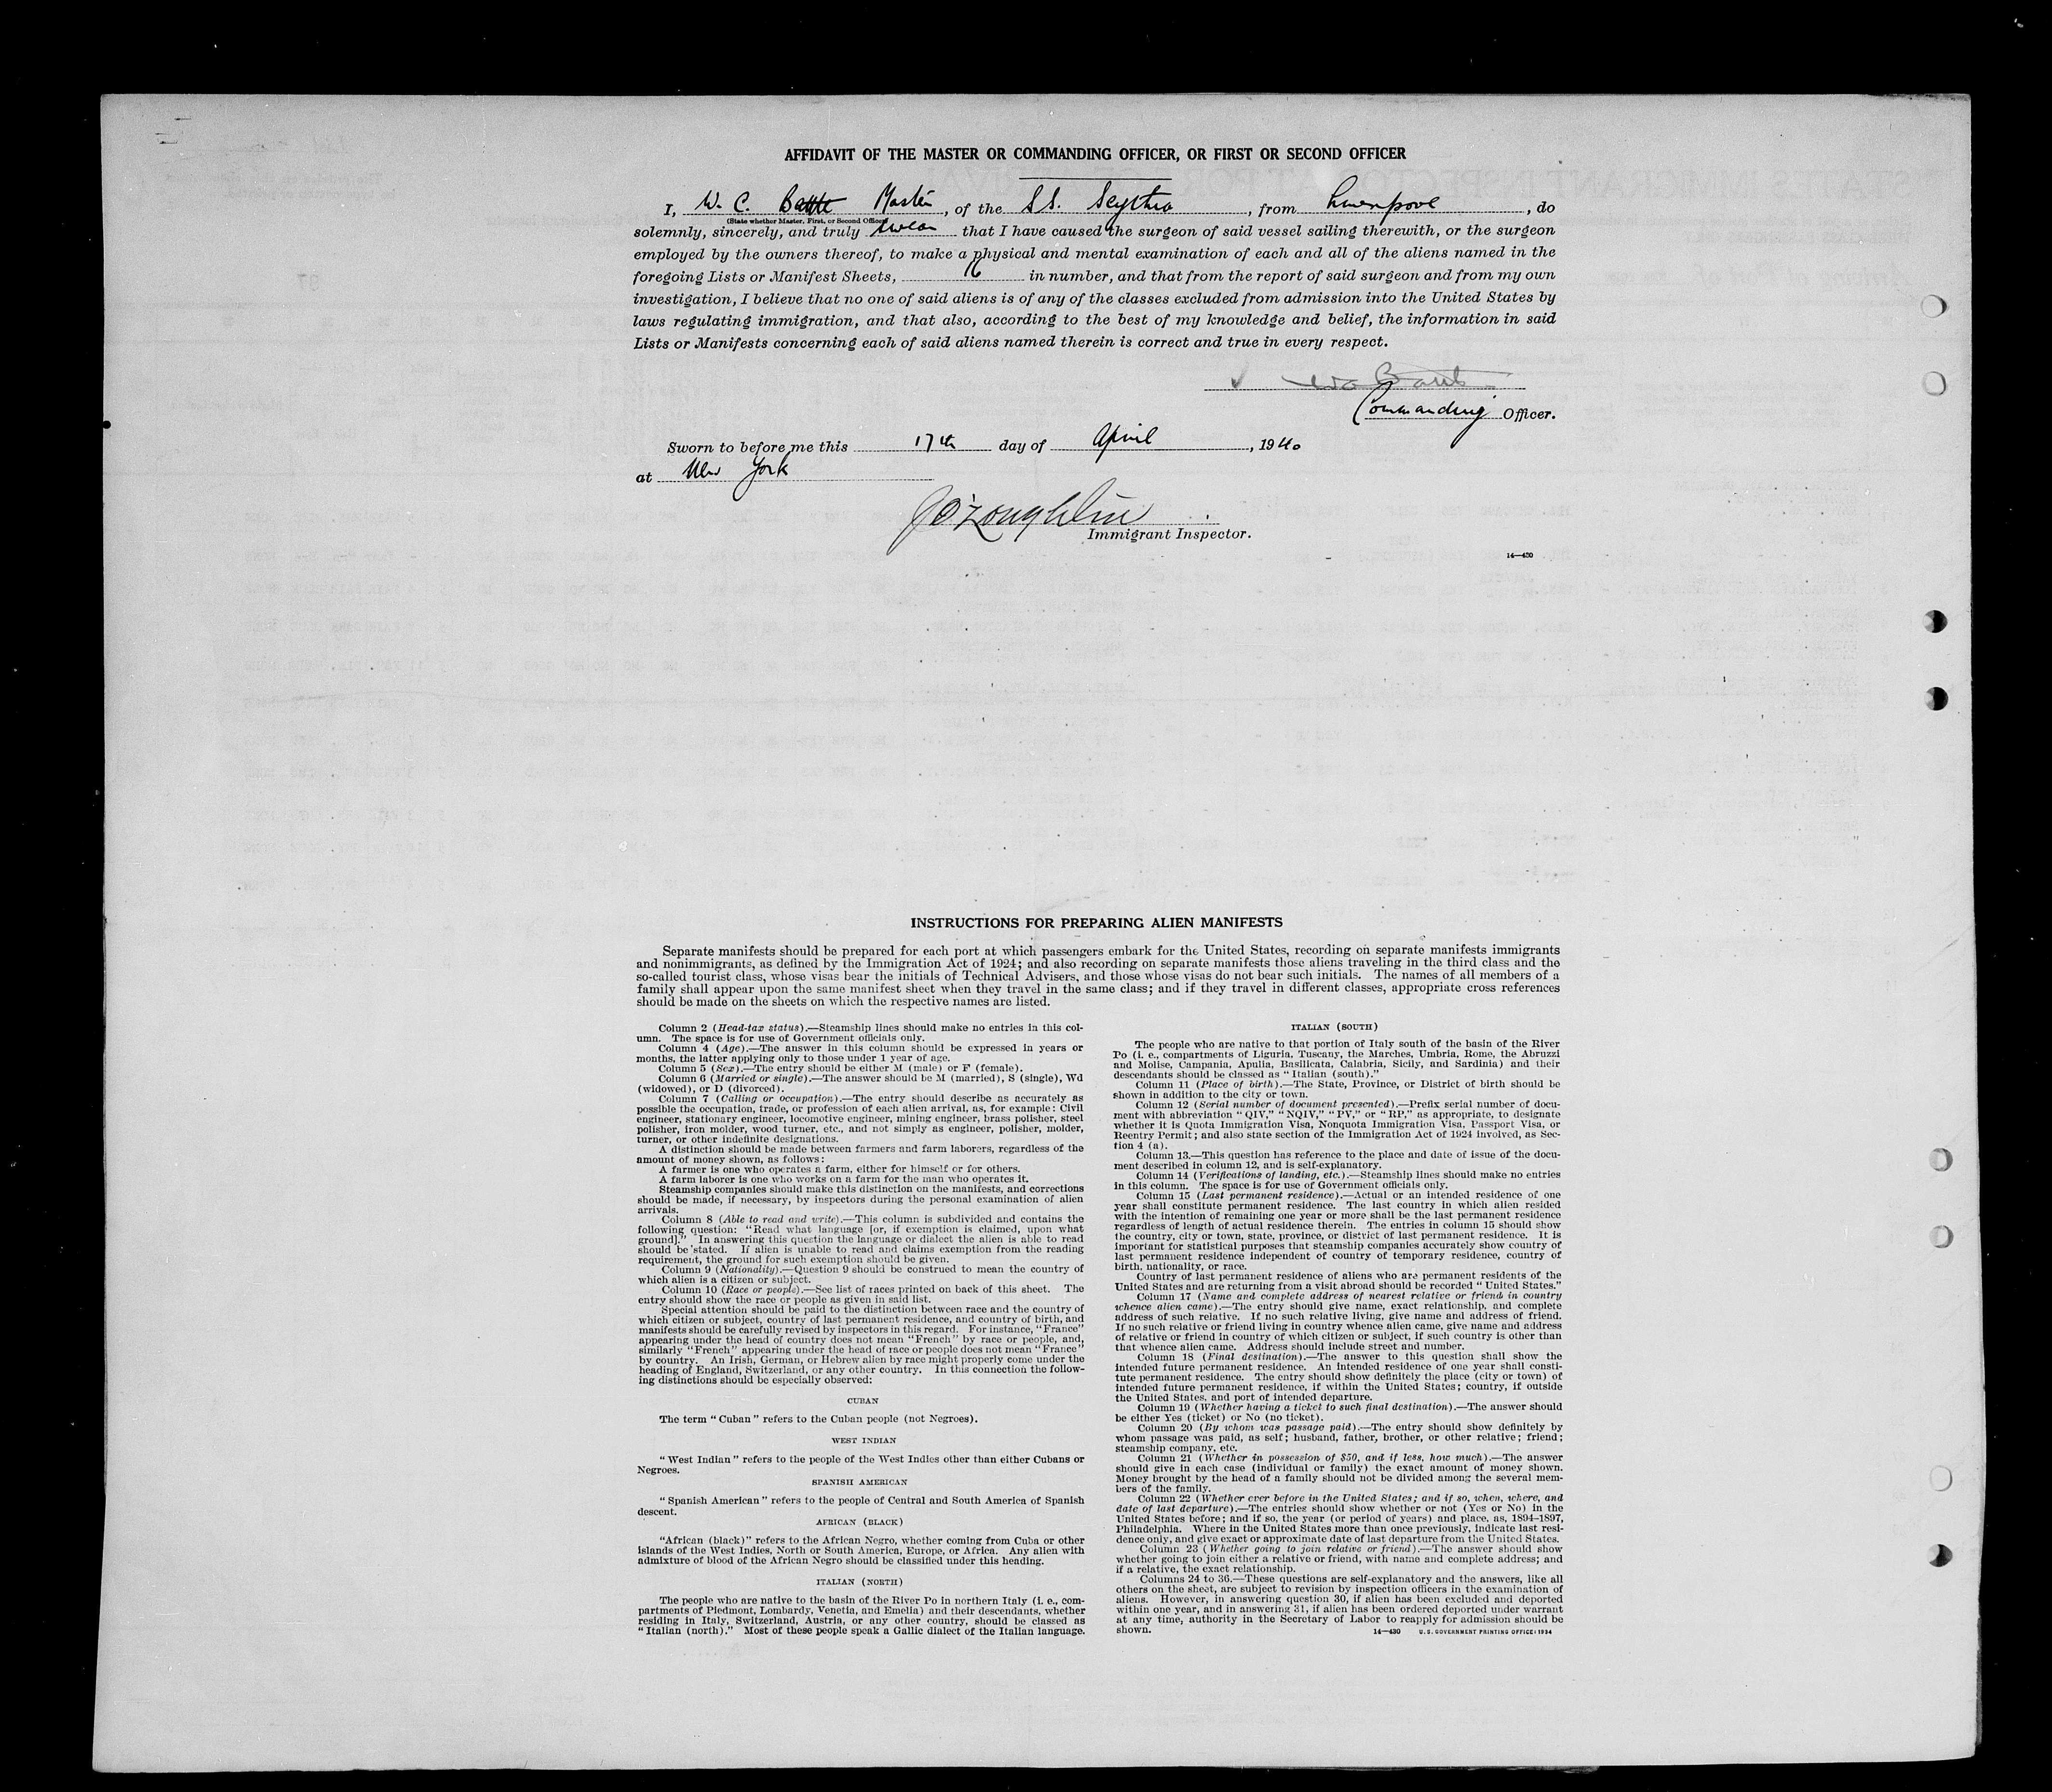 AFFIDAVIT OF THE MASTER OR COMMANDING OFFICER, OR FIRST OR SECOND OFFICER
I, W. C. Battle Master, of the S.S. Scythia, from Liverpool, do
(State whether Master, First, or Second Officer)
solemnly, sincerely, and truly swear that I have caused the surgeon of said vessel sailing therewith, or the surgeon
employed by the owners thereof, to make a physical and mental examination of each and all of the aliens named in the
foregoing Lists or Manifest Sheets, 16 in number, and that from the report of said surgeon and from my own
investigation, I believe that no one of said aliens is of any of the classes excluded from admission into the United States by
laws regulating immigration, and that also, according to the best of my knowledge and belief, the information in said
Lists or Manifests concerning each of said aliens named therein is correct and true in every respect.
Commanding Officer.
Sworn to before me this 17th day of April, 1940
at New York
J O'Loughlin
Immigrant Inspector.
14—430
INSTRUCTIONS FOR PREPARING ALIEN MANIFESTS
Separate manifests should be prepared for each port at which passengers embark for the United States, recording on separate manifests immigrants
and nonimmigrants, as defined by the Immigration Act of 1924; and also recording on separate manifests those aliens traveling in the third class and the
so-called tourist class, whose visas bear the initials of Technical Advisers, and those whose visas do not bear such initials. The names of all members of a
family shall appear upon the same manifest sheet when they travel in the same class; and if they travel in different classes, appropriate cross references
should be made on the sheets on which the respective names are listed.
Column 2 (Head-tax status).—Steamship lines should make no entries in this col-
umn. The space is for use of Government officials only.
Column 4 (Age).—The answer in this column should be expressed in years or
months, the latter applying only to those under 1 year of age.
Column 5 (Sex).—The entry should be either M (male) or F (female).
Column 6 (Married or single).—The answer should be M (married), S (single), Wd
(widowed), or D (divorced).
Column 7 (Calling or occupation).—The entry should describe as accurately as
possible the occupation, trade, or profession of each alien arrival, as, for example: Civil
engineer, stationary engineer, locomotive engineer, mining engineer, brass polisher, steel
polisher, iron molder, wood turner, etc., and not simply as engineer, polisher, molder,
turner, or other indefinite designations.
A distinction should be made between farmers and farm laborers, regardless of the
amount of money shown, as follows:
A farmer is one who operates a farm, either for himself or for others.
A farm laborer is one who works on a farm for the man who operates it.
Steamship companies should make this distinction on the manifests, and corrections
should be made, if necessary, by inspectors during the personal examination of alien
arrivals.
Column 8 (Able to read and write).—This column is subdivided and contains the
following question: "Read what language [or, if exemption is claimed, upon what
ground]." In answering this question the language or dialect the alien is able to read
should be stated. If alien is unable to read and claims exemption from the reading
requirement, the ground for such exemption should be given.
Column 9 (Nationality).—Question 9 should be construed to mean the country of
which alien is a citizen or subject.
Column 10 (Race or people).—See list of races printed on back of this sheet. The
entry should show the race or people as given in said list.
Special attention should be paid to the distinction between race and the country of
which citizen or subject, country of last permanent residence, and country of birth, and
manifests should be carefully revised by inspectors in this regard. For instance, "France"
appearing under the head of country does not mean "French" by race or people, and,
similarly "French" appearing under the head of race or people does not mean "France"
by country. An Irish, German, or Hebrew alien by race might properly come under the
heading of England, Switzerland, or any other country. In this connection the follow-
ing distinctions should be especially observed:
CUBAN
The term "Cuban" refers to the Cuban people (not Negroes).
WEST INDIAN
"West Indian" refers to the people of the West Indies other than either Cubans or
Negroes.
SPANISH AMERICAN
"Spanish American" refers to the people of Central and South America of Spanish
descent.
AFRICAN (BLACK)
"African (black)" refers to the African Negro, whether coming from Cuba or other
islands of the West Indies, North or South America, Europe, or Africa. Any alien with
admixture of blood of the African Negro should be classified under this heading.
ITALIAN (NORTH)
The people who are native to the basin of the River Po in northern Italy (i. e., com-
partments of Piedmont, Lombardy, Venetia, and Emelia) and their descendants, whether
residing in Italy, Switzerland, Austria, or any other country, should be classed as
"Italian (north)." Most of these people speak a Gallic dialect of the Italian language.
ITALIAN (SOUTH)
The people who are native to that portion of Italy south of the basin of the River
Po (i. e., compartments of Liguria, Tuscany, the Marches, Umbria, Rome, the Abruzzi
and Molise, Campania, Apulia, Basilicata, Calabria, Sicily, and Sardinia) and their
descendants should be classed as "Italian (south)."
Column 11 (Place of birth).—The State, Province, or District of birth should be
shown in addition to the city or town.
Column 12 (Serial number of document presented).—Prefix serial number of docu-
ment with abbreviation "QIV," "NQIV," "PV," or "RP," as appropriate, to designate
whether it is Quota Immigration Visa, Nonquota Immigration Visa, Passport Visa, or
Reentry Permit; and also state section of the Immigration Act of 1924 involved, as Sec-
tion 4 (a).
Column 13.—This question has reference to the place and date of issue of the docu-
ment described in column 12, and is self-explanatory.
Column 14 (Verifications of landing, etc.).—Steamship lines should make no entries
in this column. The space is for use of Government officials only.
Column 15 (Last permanent residence).—Actual or an intended residence of one
year shall constitute permanent residence. The last country in which alien resided
with the intention of remaining one year or more shall be the last permanent residence
regardless of length of actual residence therein. The entries in column 15 should show
the country, city or town, state, province, or district of last permanent residence. It is
important for statistical purposes that steamship companies accurately show country of
last permanent residence independent of country of temporary residence, country of
birth, nationality, or race.
Country of last permanent residence of aliens who are permanent residents of the
United States and are returning from a visit abroad should be recorded "United States."
Column 17 (Name and complete address of nearest relative or friend in country
whence alien came).—The entry should give name, exact relationship, and complete
address of such relative. If no such relative living, give name and address of friend.
If no such relative or friend living in country whence alien came, give name and address
of relative or friend in country of which citizen or subject, if such country is other than
that whence alien came. Address should include street and number.
Column 18 (Final destination).—The answer to this question shall show the
intended future permanent residence. An intended residence of one year shall consti-
tute permanent residence. The entry should show definitely the place (city or town) of
intended future permanent residence, if within the United States; country, if outside
the United States, and port of intended departure.
Column 19 (Whether having a ticket to such final destination).—The answer should
be either Yes (ticket) or No (no ticket).
Column 20 (By whom was passage paid).—The entry should show definitely by
whom passage was paid, as self; husband, father, brother, or other relative; friend;
steamship company, etc.
Column 21 (Whether in possession of $50, and if less, how much).—The answer
should give in each case (individual or family) the exact amount of money shown.
Money brought by the head of a family should not be divided among the several mem-
bers of the family.
Column 22 (Whether ever before in the United States; and if so, when, where, and
date of last departure).—The entries should show whether or not (Yes or No) in the
United States before; and if so, the year (or period of years) and place, as, 1894–1897,
Philadelphia. Where in the United States more than once previously, indicate last resi-
dence only, and give exact or approximate date of last departure from the United States.
Column 23 (Whether going to join relative or friend).—The answer should show
whether going to join either a relative or friend, with name and complete address; and
if a relative, the exact relationship.
Columns 24 to 36.—These questions are self-explanatory and the answers, like all
others on the sheet, are subject to revision by inspection officers in the examination of
aliens. However, in answering question 30, if alien has been excluded and deported
within one year, and in answering 31, if alien has been ordered deported under warrant
at any time, authority in the Secretary of Labor to reapply for admission should be
shown.
14—430 U. S. GOVERNMENT PRINTING OFFICE: 1934